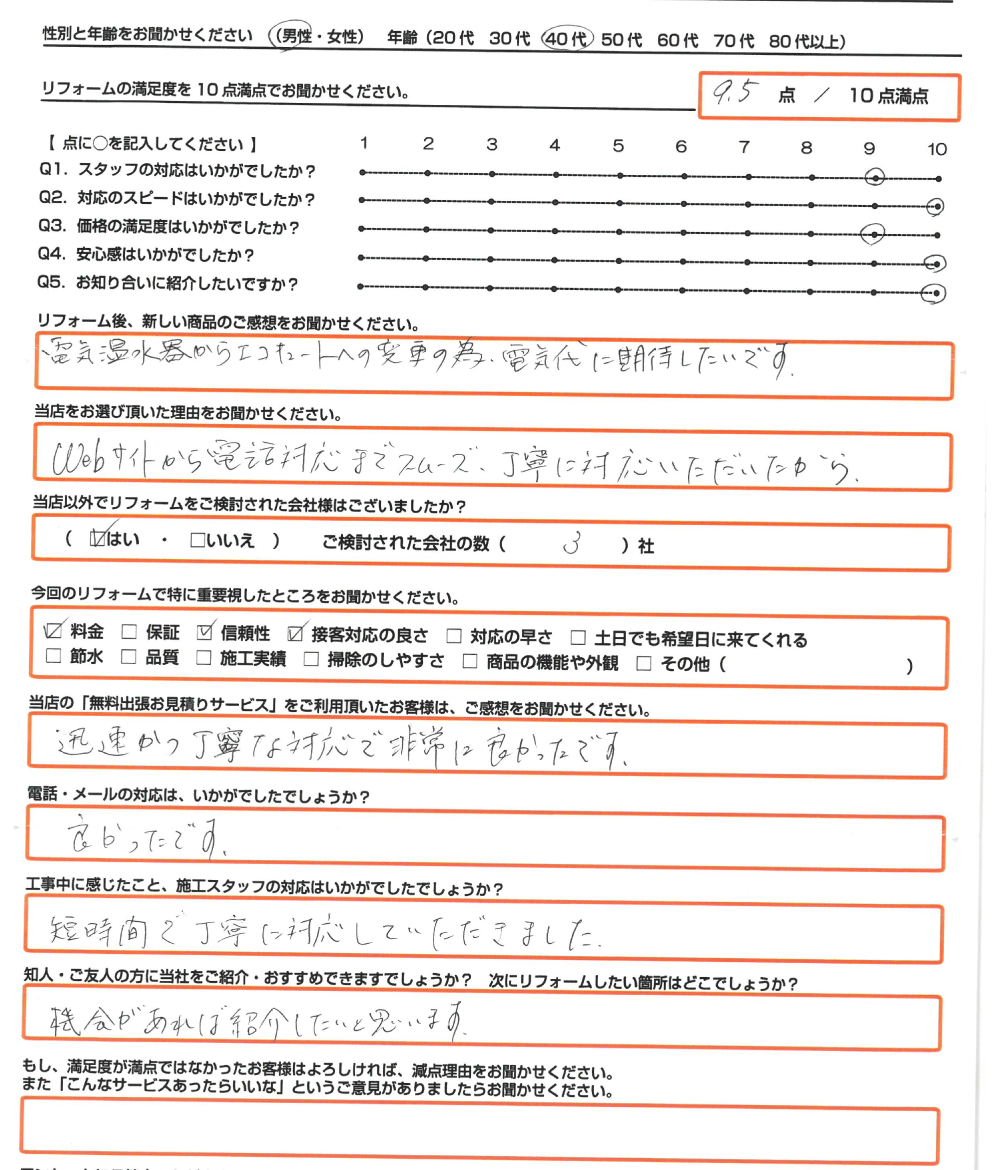 性別と年齢をお聞かせください (男性・女性) 年齢(20代 30代 40代 50代 60代 70代 80代以上)
リフォームの満足度を10点満点でお聞かせください。 9.5 点 / 10点満点
【 点に○を記入してください 】 1 2 3 4 5 6 7 8 9 10
Q1. スタッフの対応はいかがでしたか?
Q2. 対応のスピードはいかがでしたか?
Q3. 価格の満足度はいかがでしたか?
Q4. 安心感はいかがでしたか?
Q5. お知り合いに紹介したいですか?
リフォーム後、新しい商品のご感想をお聞かせください。
電気温水器からエコキュートへの変更の為、電気代に期待したいです。
当店をお選び頂いた理由をお聞かせください。
Webサイトから電話対応までスムーズ、丁寧に対応いただいたから。
当店以外でリフォームをご検討された会社様はございましたか?
( ☑はい ・ □いいえ ) ご検討された会社の数( 3 )社
今回のリフォームで特に重要視したところをお聞かせください。
☑ 料金 □ 保証 ☑ 信頼性 ☑ 接客対応の良さ □ 対応の早さ □ 土日でも希望日に来てくれる
□ 節水 □ 品質 □ 施工実績 □ 掃除のしやすさ □ 商品の機能や外観 □ その他( )
当店の「無料出張お見積りサービス」をご利用頂いたお客様は、ご感想をお聞かせください。
迅速かつ丁寧な対応で非常に良かったです。
電話・メールの対応は、いかがでしたでしょうか?
良かったです。
工事中に感じたこと、施工スタッフの対応はいかがでしたでしょうか?
短時間で丁寧に対応していただきました。
知人・ご友人の方に当社をご紹介・おすすめできますでしょうか? 次にリフォームしたい箇所はどこでしょうか?
機会があれば紹介したいと思います。
もし、満足度が満点ではなかったお客様はよろしければ、減点理由をお聞かせください。
また「こんなサービスあったらいいな」というご意見がありましたらお聞かせください。